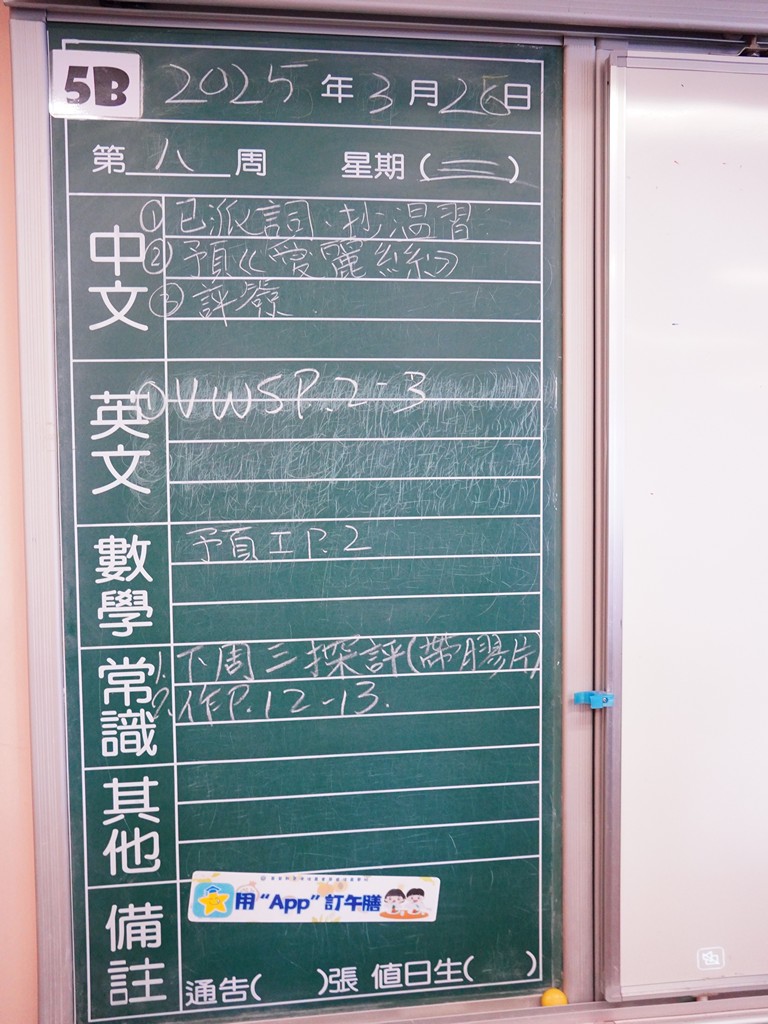 5B 2025年3月26日
第八周 星期(三)
中文
①已派詞、抄溫習
②預《愛麗絲》
③評
英文
①VWSP.2-3
數學
預工P.2
常識
1.下周三探評(帶膠片)
2.作P.12-13.
其他
備註
用“App”訂午膳
通告( )張 值日生( )